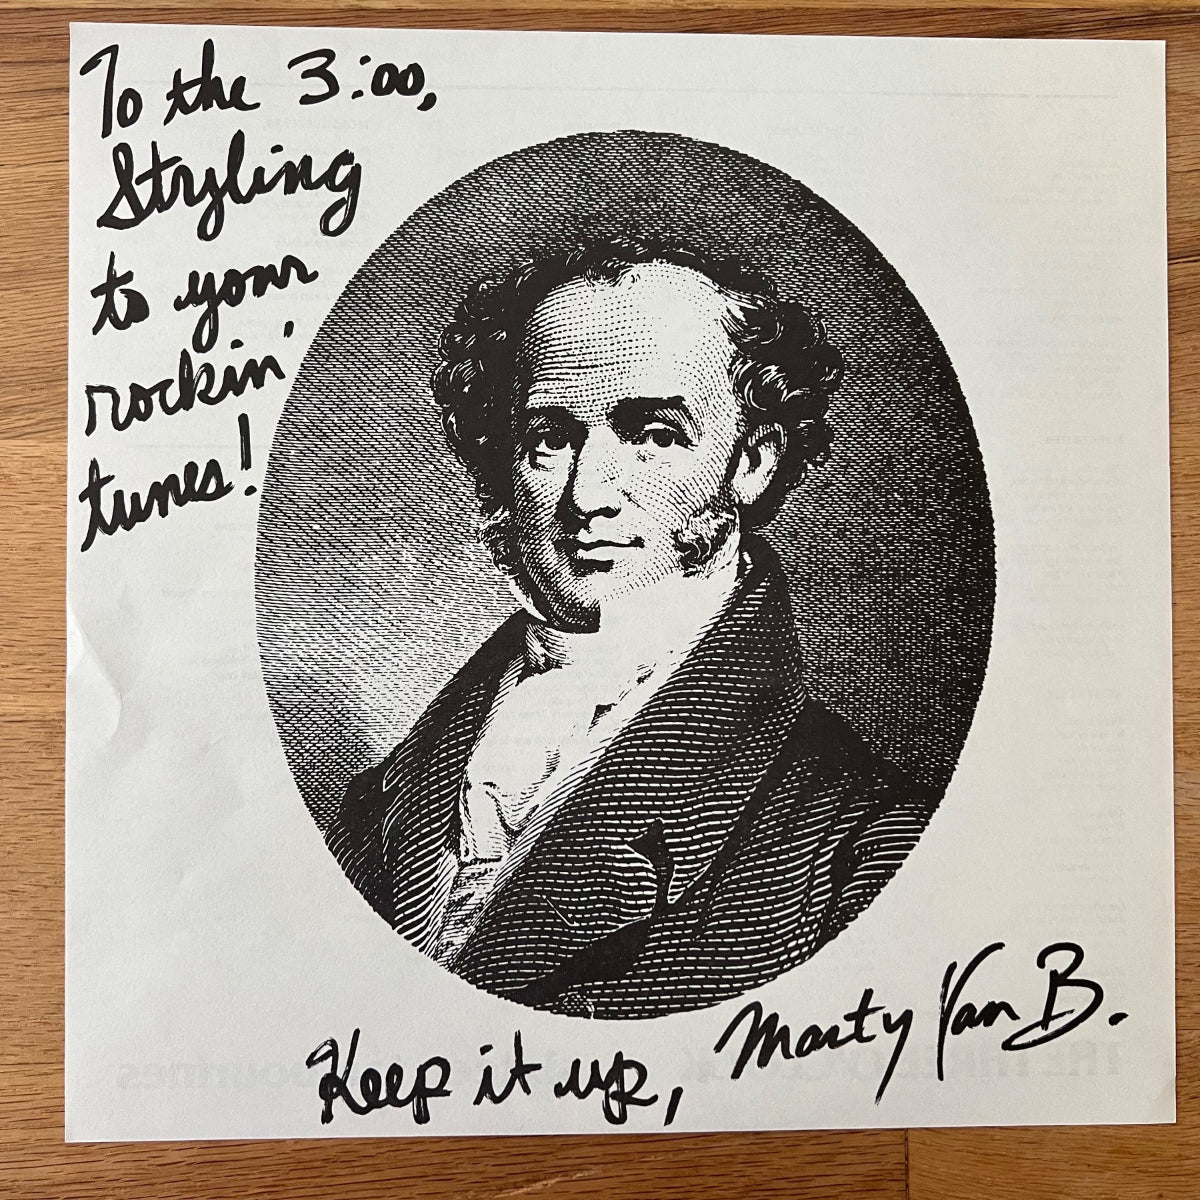 To the 3:00,
Styling
to your
rockin'
tunes!
Keep it up,
Marty Van B.